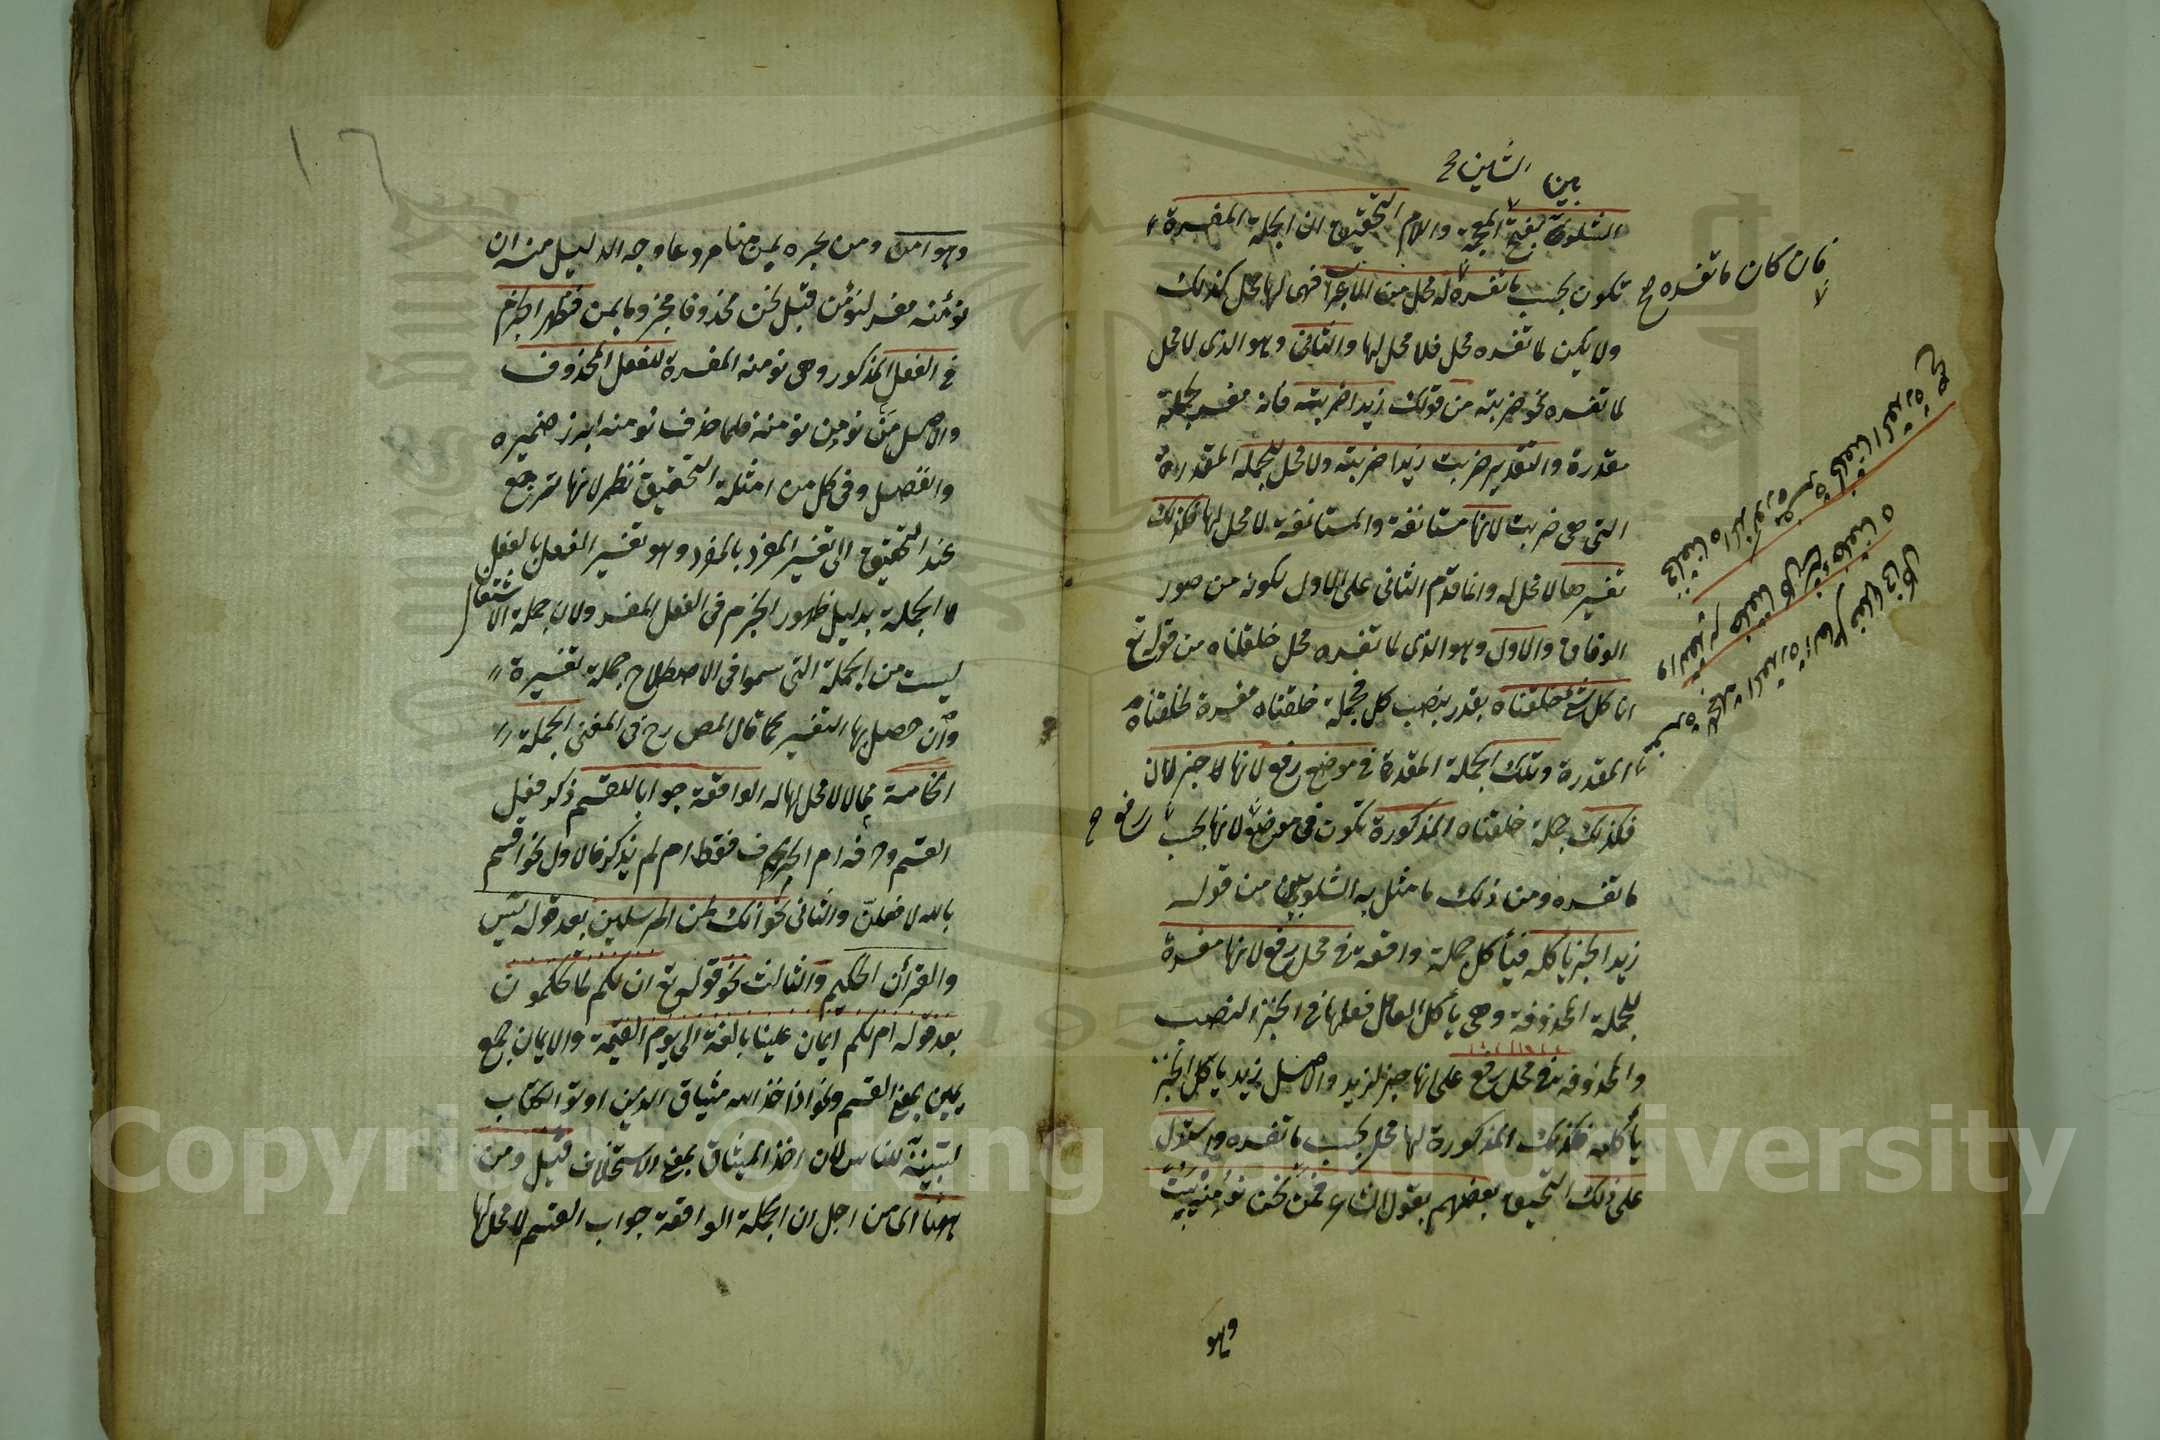 بين الشلوبين ح
الشلوبين بفتح المعجمة واللام التحقيق ان الجملة المفسرة
تكون بحسب ما تفسره له محل من الاعراب فهي لها محل كذلك
فان كان ما تفسره صح
ولا يكن لما تفسره محل فلا محل لها والثاني وهو الذي لا محل
لما تفسره نحو ضربته من قولك زيدا ضربته فانه مفسر لجملة
مقدرة والتقدير ضربت زيدا ضربته ولا محل للجملة المقدرة
التي هي ضربت لانها مستانفة والمستانفة لا محل لها فكذلك
تفسيرها لا محل له وانما قدم الثاني على الاول لكونه من صور
الوفاق والاول وهو الذي لما تفسره محل خلقناه من قوله تع
انا كل شئ خلقناه بقدر بنصب كل فجملة خلقناه مفسرة لخلقناه
المقدرة وتلك الجملة المقدرة في موضع رفع لانها خبر لان
فكذلك جملة خلقناه المذكورة تكون في موضع لانها بحسب
رفع ح
ما تفسره ومن ذلك ما مثل به الشلوبين من قوله
زيد الخبز ياكله فيأكل جملة واقعة في محل رفع لانها مفسرة
للجملة المحذوفة وهي يأكل العامل فعلها في الخبز النصب
والمحذوفة في محل رفع على انها خبر لزيد والاصل زيد يأكل الخبز
يأكله فكذلك المذكورة لها محل بحسب ما تفسره واستدل
على ذلك التحقيق بعضهم بقول الشاعر فمن نحن نؤمنه يبت
وهو
وهو امن ومن لا نجره يمس منا مروعا وجه الدليل منه ان
نؤمنه مفسر لنؤمن قبل نحن محذوفا مجزوما بمن فظهر الجزم
في الفعل المذكور وهي نؤمنه المفسرة للفعل المحذوف
والاصل من نؤمن نؤمنه فلما حذف نؤمن ابرز ضميره
وانفصل وفي كل من امثلة التحقيق نظر لانها ترجع
عند التحقيق الى تفسير المفرد بالمفرد وهو تفسير الفعل بالفعل
لا الجملة بدليل ظهور الجزم في الفعل المفسر ولان جملة الاشتغال
ليست من الجملة التي سموا في الاصطلاح جملة تفسيرة
وان حصل بها التفسير كما قال المص رح في المغني الجملة
الخامسة مما لا محل لها له الواقعة جوابا للقسم ذكر فعل
القسم وحرفه ام الحرف فقط ام لم يذكر فالاول نحو اقسم
بالله لافعلن والثاني نحو انك لمن المرسلين بعد قوله يس
والقرأن الحكيم والثالث نحو قوله تع ان لكم لما تحكمون
بعد قوله ام لكم ايمان علينا بالغة الى يوم القيمة والايمان جمع
يمين بمعنى القسم ونحو اذ اخذ الله ميثاق الذين اوتوا الكتاب
لتبيننه للناس لان اخذ الميثاق بمعنى الاستحلاف قيل ومن
هنا اى من اجل ان الجملة الواقعة جواب القسم لا محل لها
Copyright © King Saud University